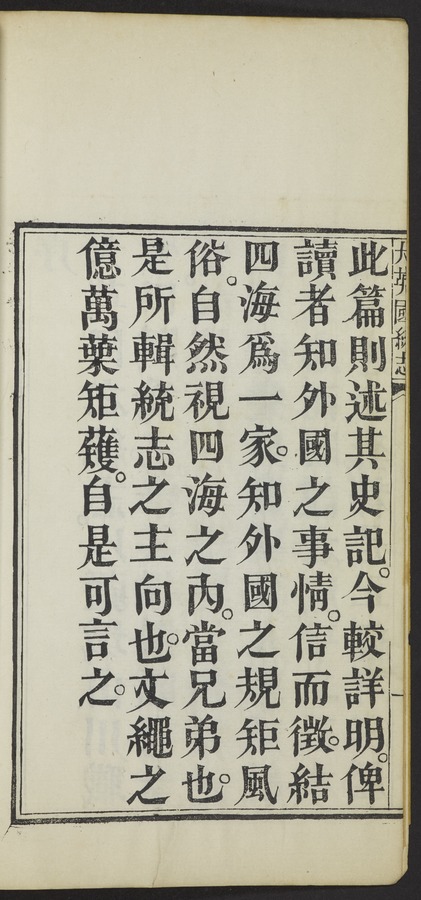 大英國統志
此篇則述其史記。今較詳明。俾
讀者知外國之事情。信而徵。結
四海爲一家。知外國之規矩風
俗。自然視四海之內。當兄弟也。
是所輯統志之主向也。文繩之
億萬葉矩蒦。自是可言之。